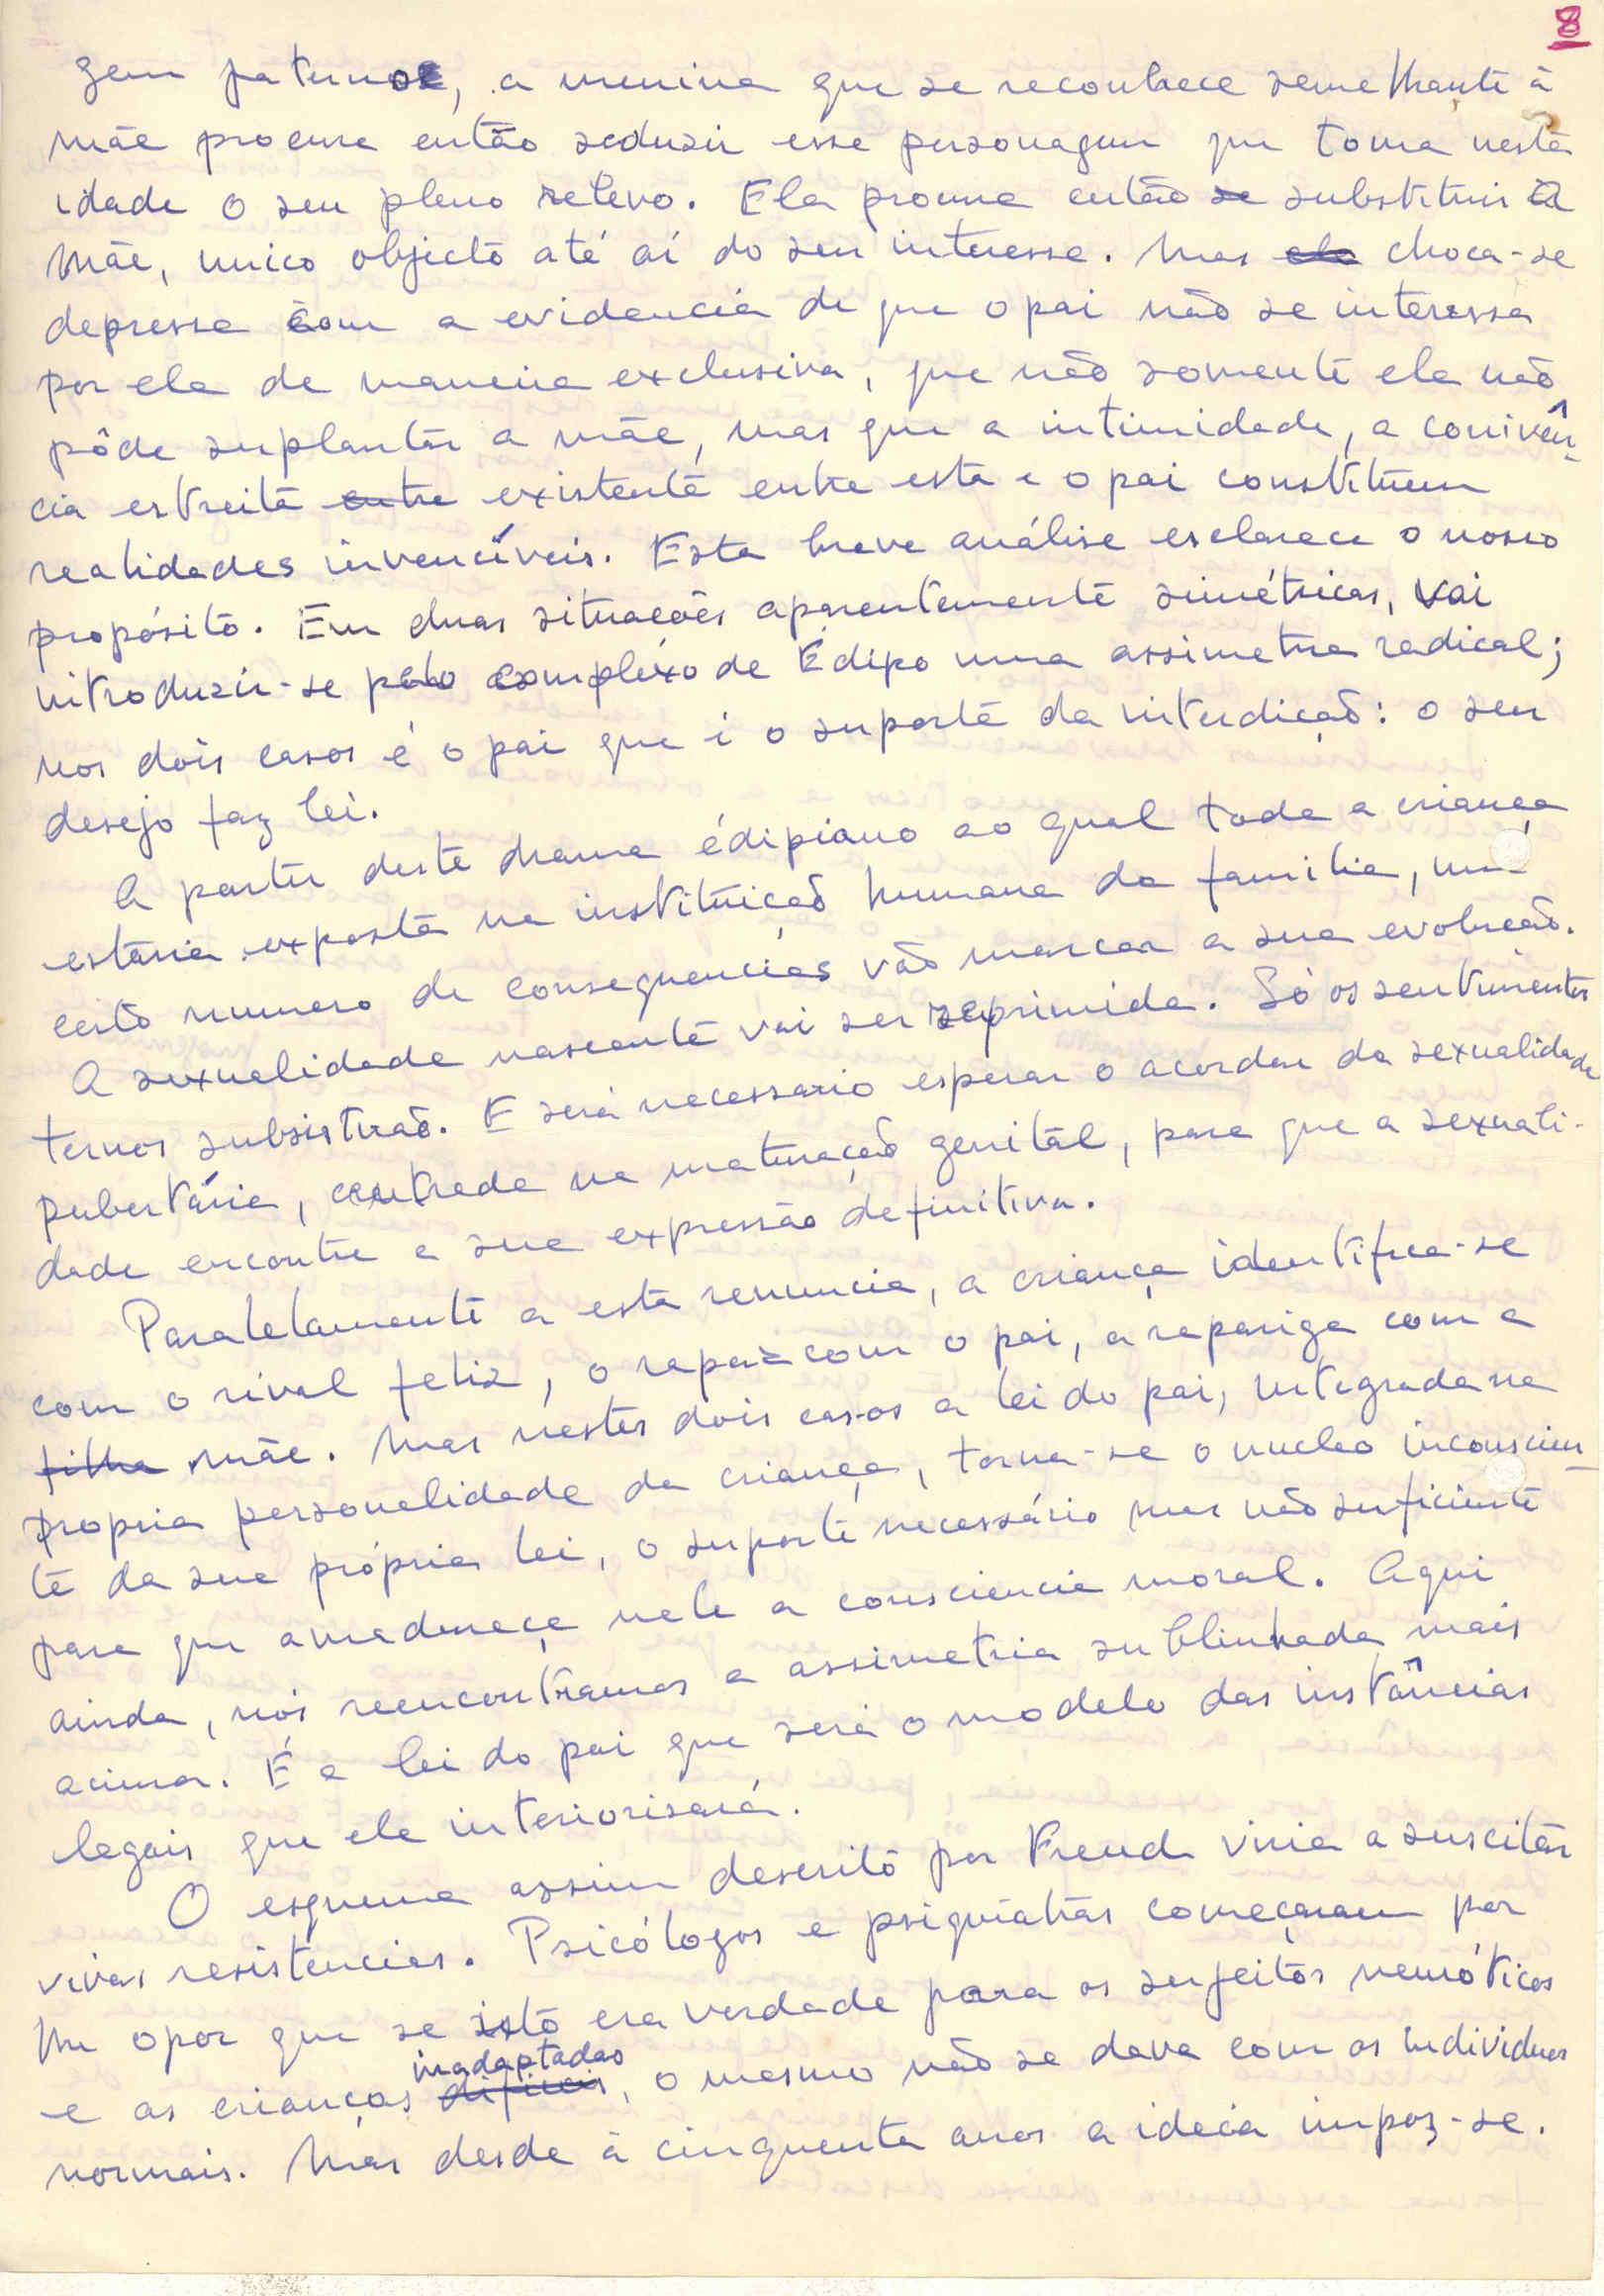 8
gem paterna, a menina que se reconhece semelhante à
mãe procura então seduzir esse personagem que toma nesta
idade o seu pleno relevo. Ela procura então se substituir a
mãe, unico objecto até aí do seu interesse. Mas ela choca-se
depressa com a evidencia de que o pai não se interessa
por ela de maneira exclusiva, que não somente ela não
pôde suplantar a mãe, mas que a intimidade, a conivên-
cia estreita entre existente entre esta e o pai constituem
realidades invencíveis. Esta breve análise esclarece o nosso
propósito. Em duas situações aparentemente simétricas, vai
introduzir-se pelo complexo de Édipo uma assimetria radical;
nos dois casos é o pai que é o suporte da interdição: o seu
desejo faz lei.
A partir deste drama édipiano ao qual toda a criança
estaria exposta na instituição humana da familia, um
certo numero de consequencias vão marcar a sua evolução.
A sexualidade nascente vai ser reprimida. Só os sentimentos
ternos subsistirão. E será necessario esperar o acordar da sexualidade
pubertária, centrada na maturação genital, para que a sexuali-
dade encontre a sua expressão definitiva.
Paralelamente a esta renuncia, a criança identifica-se
com o rival feliz, o rapaz com o pai, a rapariga com a
filha mãe. Mas nestes dois casos a lei do pai, integrada na
propria personalidade da criança, torna-se o nucleo inconscien-
te da sua própria lei, o suporte necessário mas não suficiente
para que amadureça nele a consciencia moral. Aqui
ainda, nós reencontramos a assimetria sublinhada mais
acima. É a lei do pai que será o modelo das instâncias
legais que ele interiorisará.
O esquema assim descrito por Freud viria a suscitar
vivas resistencias. Psicólogos e psiquiatras começaram por
lhe opor que se isto era verdade para os sujeitos neuróticos
inadaptadas
e as crianças difíceis, o mesmo não se dava com os individuos
normais. Mas desde à cinquenta anos a ideia impoz-se.